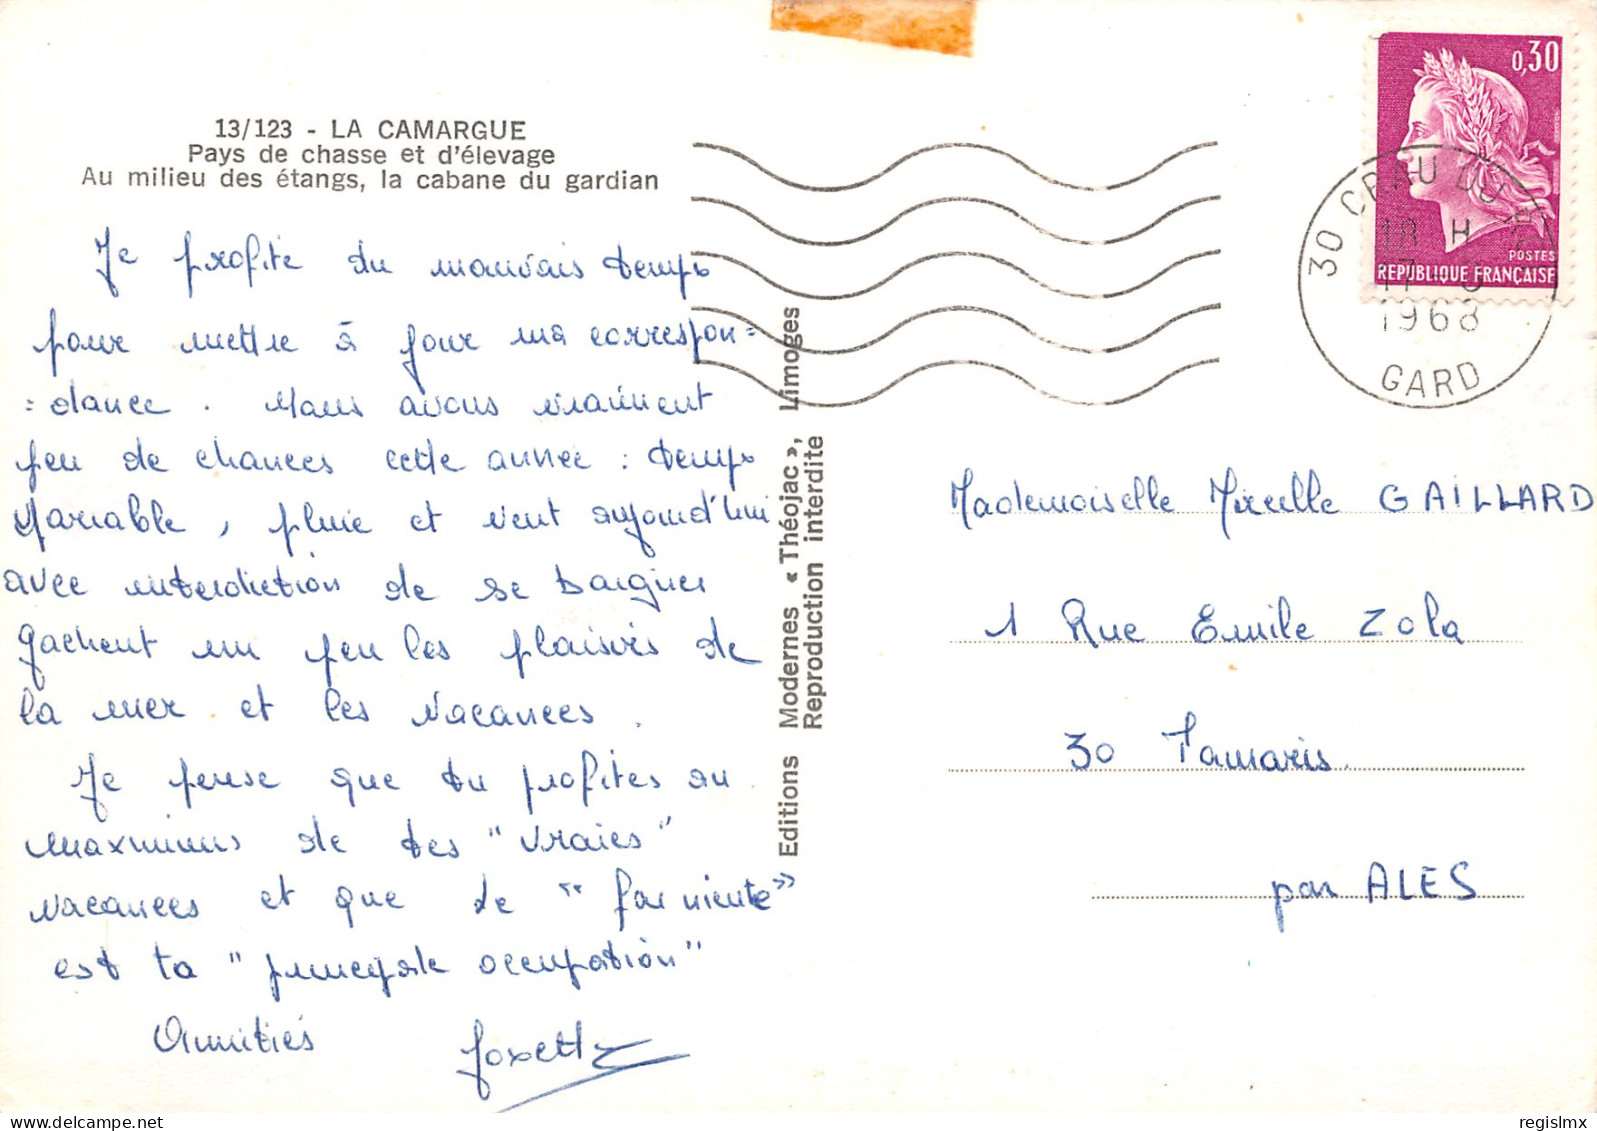 13/123 - LA CAMARGUE
Pays de chasse et d'élevage
Au milieu des étangs, la cabane du gardian
Je profite du mauvais temps
pour mettre à jour ma correspon=
=dance. Nous avons vraiment
peu de chances cette année : temps
variable, pluie et vent aujourd'hui
avec interdiction de se baigner
gachent un peu les plaisirs de
la mer et les vacances.
Je pense que tu profites au
maximum de tes "vraies"
vacances et que le "farniente"
est ta "principale occupation"
Amitiés
Editions Modernes « Théojac », Limoges
Reproduction interdite
0,30
POSTES
REPUBLIQUE FRANÇAISE
30 DU
18 H
17
1968
GARD
Mademoiselle Mireille GAILLARD
1 Rue Emile Zola
30 Tamaris
par ALES
regislmx